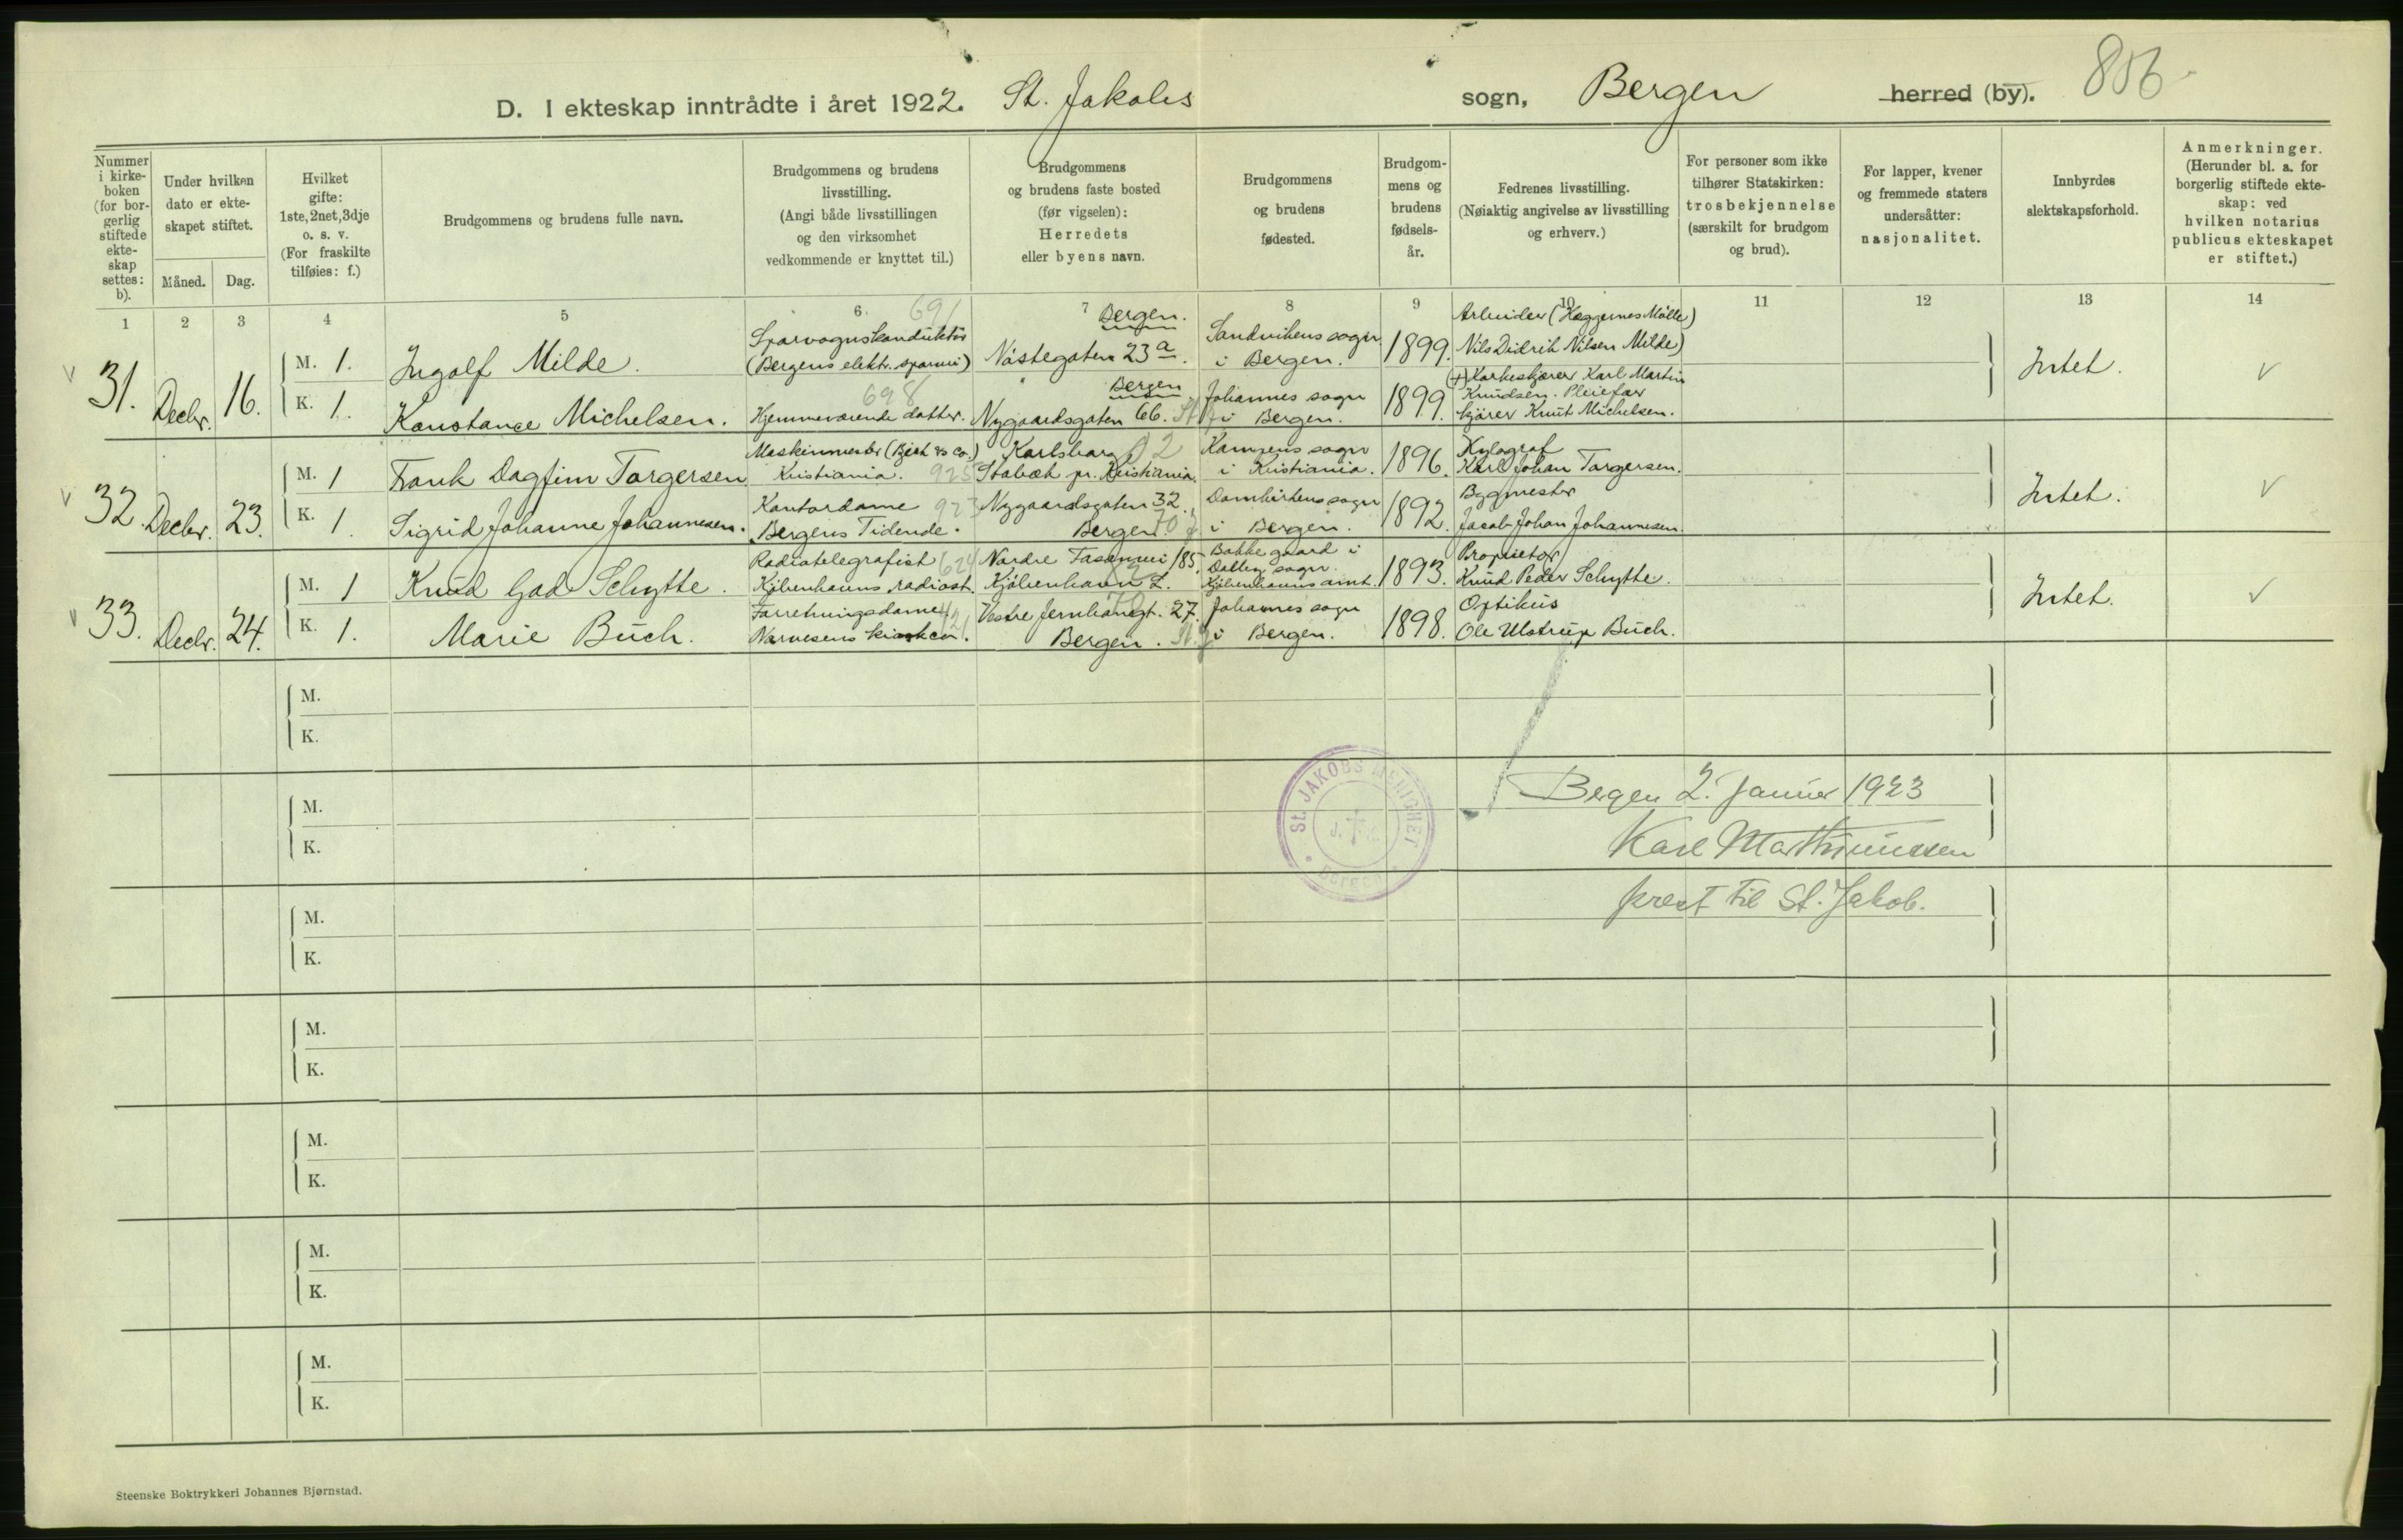 D. I ekteskap inntrådte i året 1922. St. Jakobs sogn, Bergen herred (by). 806
Nummer i kirkeboken (for borgerlig stiftede ekteskap settes: b).
Under hvilken dato er ekteskapet stiftet.
Måned. Dag.
Hvilket gifte: 1ste, 2net, 3dje o. s. v. (For fraskilte tilføies: f.)
Brudgommens og brudens fulle navn.
Brudgommens og brudens livsstilling. (Angi både livsstillingen og den virksomhet vedkommende er knyttet til.)
Brudgommens og brudens faste bosted (før vigselen): Herredets eller byens navn.
Brudgommens og brudens fødested.
Brudgommens og brudens fødselsår.
Fedrenes livsstilling. (Nøiaktig angivelse av livsstilling og erhverv.)
For personer som ikke tilhører Statskirken: trosbekjennelse (særskilt for brudgom og brud).
For lapper, kvener og fremmede staters undersåtter: nasjonalitet.
Innbyrdes slektskapsforhold.
Anmerkninger. (Herunder bl. a. for borgerlig stiftede ekteskap: ved hvilken notarius publicus ekteskapet er stiftet.)
1 2 3 4 5 6. 7 8 9 10 11 12 13 14
31. Decbr. 16.
M. 1. Ingolf Milde. Sporvognskonduktör (Bergens elektr. sporvei) 691 Bergen. Nöstegaten 23 a. Sandvikens sogn i Bergen. 1899. Arbeider (Heggernes Mölle) Nils Didrik Nilsen Milde) Intet. V
K. 1. Konstance Michelsen. 698 Hjemmeværende datter. Bergen Nygaardsgaten 66. St J Johannes sogn i Bergen. 1899. (+) Korkeskjærer Karl Martin Knudsen. Pleiefar kjörer Knut Michelsen.
32. Decbr. 23.
M. 1 Frank Dagfinn Torgersen Maskinmester ( & Co.) Kristiania. 925 Karlsborg 02 Stabæk pr. Kristiania. Kampens sogn i Kristiania. 1896. Xylograf Karl Johan Torgersen. Intet. V
K. 1. Sigrid Johanne Johannesen. Kontordame 923 Bergens Tidende. Nygaardsgaten 32. Bergen. 70 J Domkirkens sogn i Bergen. 1892. Bygmester Jacob Johan Johannesen.
33. Decbr. 24.
M. 1 Knud Gad Schytte. Radiotelegrafist 624 Kjöbenhavns radiost. Nordre Fasanvei 185. Kjöbenhavn L. Bakkegaard i sogn. Kjöbenhavns amt. 1893. Proprietær Knud Peder Schytte. Intet. V
K. 1. Marie Buch. Forretningsdame Narvesens kiosker. Vestre Jernbanegt. 27. 70 Bergen. St. J Johannes sogn i Bergen. 1898. Optikus Ole Ulstrup Buch.
M.
K.
M.
K.
St. JAKOBS MENIGHET
Bergen
Bergen 2. Januar 1923
Karl Marthinussen
prest til St. Jakob.
M.
K.
M.
K.
M.
K.
M.
K.
M.
K.
Steenske Boktrykkeri Johannes Bjørnstad.